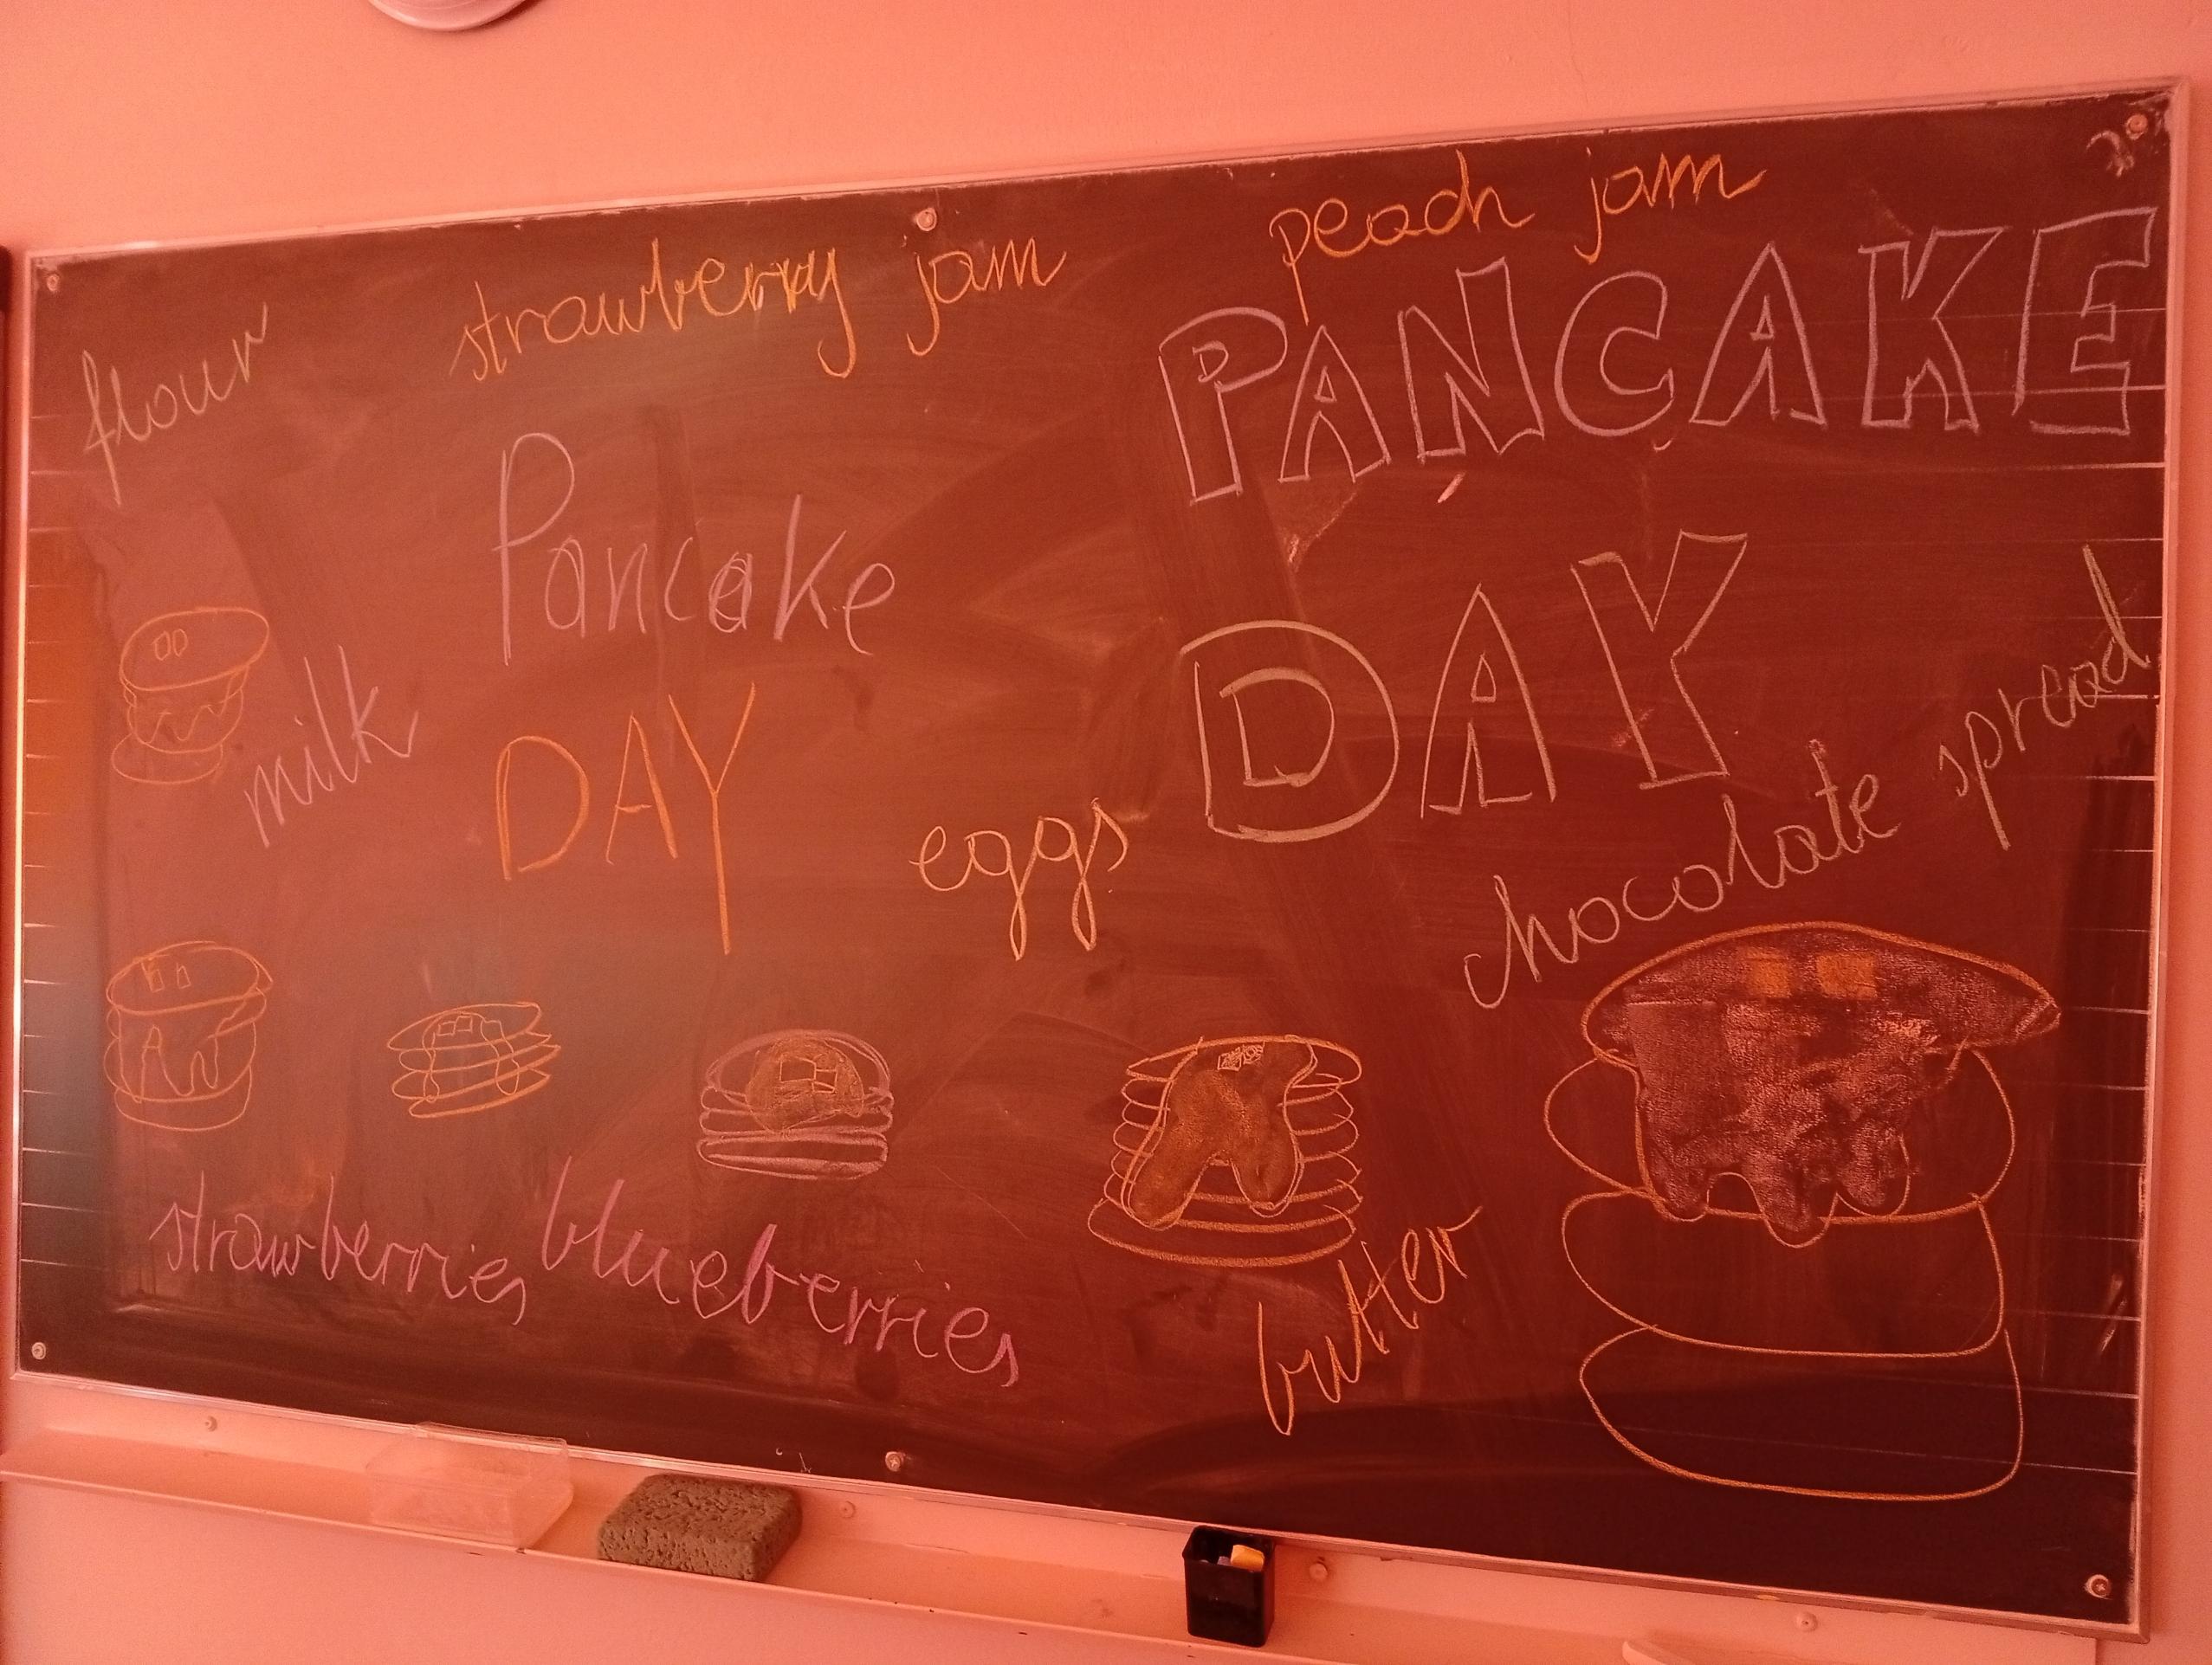 peach jam
strawberry jam
PANCAKE
flour
Pancake
DAY
milk
DAY
eggs
chocolate spread
strawberries
blueberries
butter